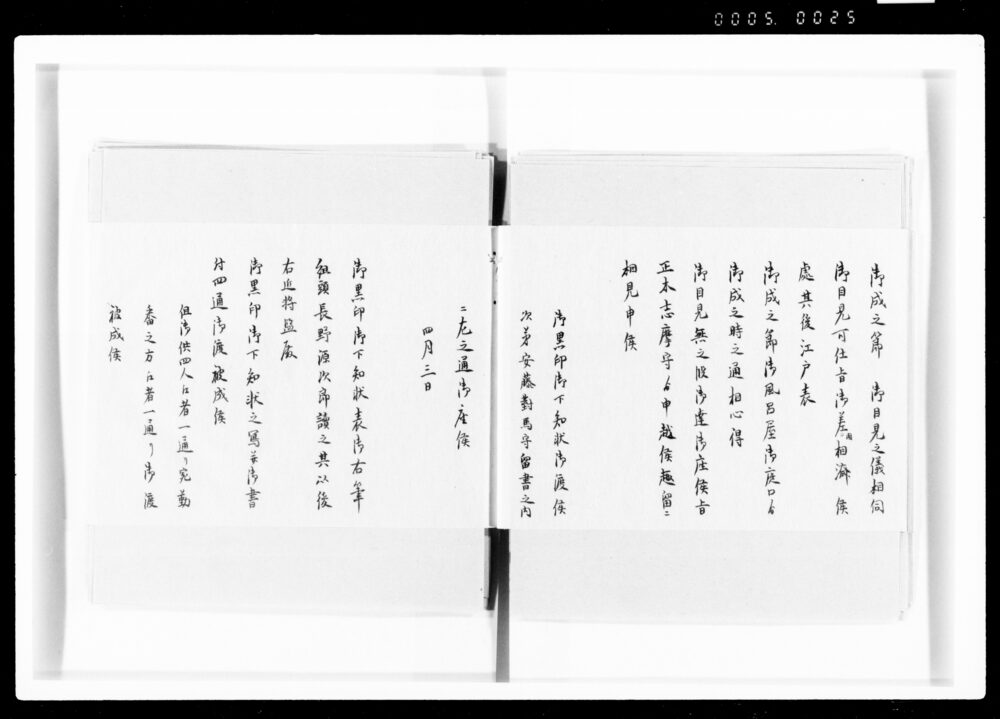 0005. 0025
御成之節　御目見之儀相伺
御目見可仕旨御差図相済候
處其後江戸表
御成之節御風呂屋御庭口ゟ
御成之時之通相心得
御目見無之段御達御座候旨
正木志摩守ゟ申越候趣留ニ
相見申候
御黒印御下知状御渡候
次第安藤對馬守留書之内
ニ左之通御座候
四月三日
御黒印御下知状表御右筆
組頭長野源次郎讀之其以後
右近将監殿
御黒印御下知状之寫并御書
付四通御渡被成候
但御供四人江者一通り宛勤
番之方江者一通り御渡
被成候